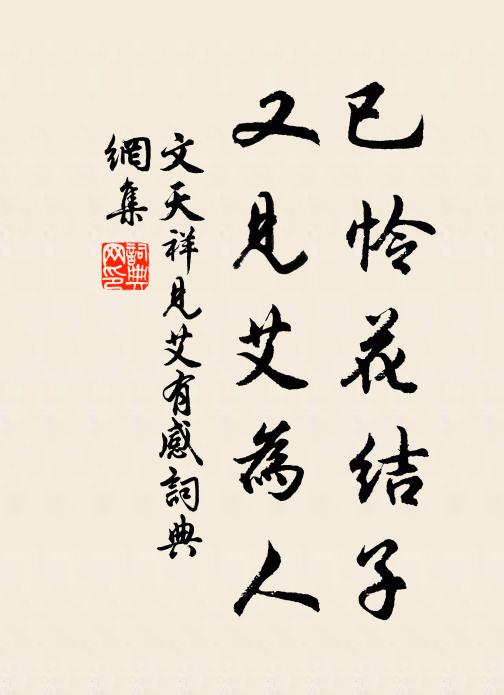 已怜花结子
又見艾為人
文天祥見艾有感詞典
網集
詞典網印